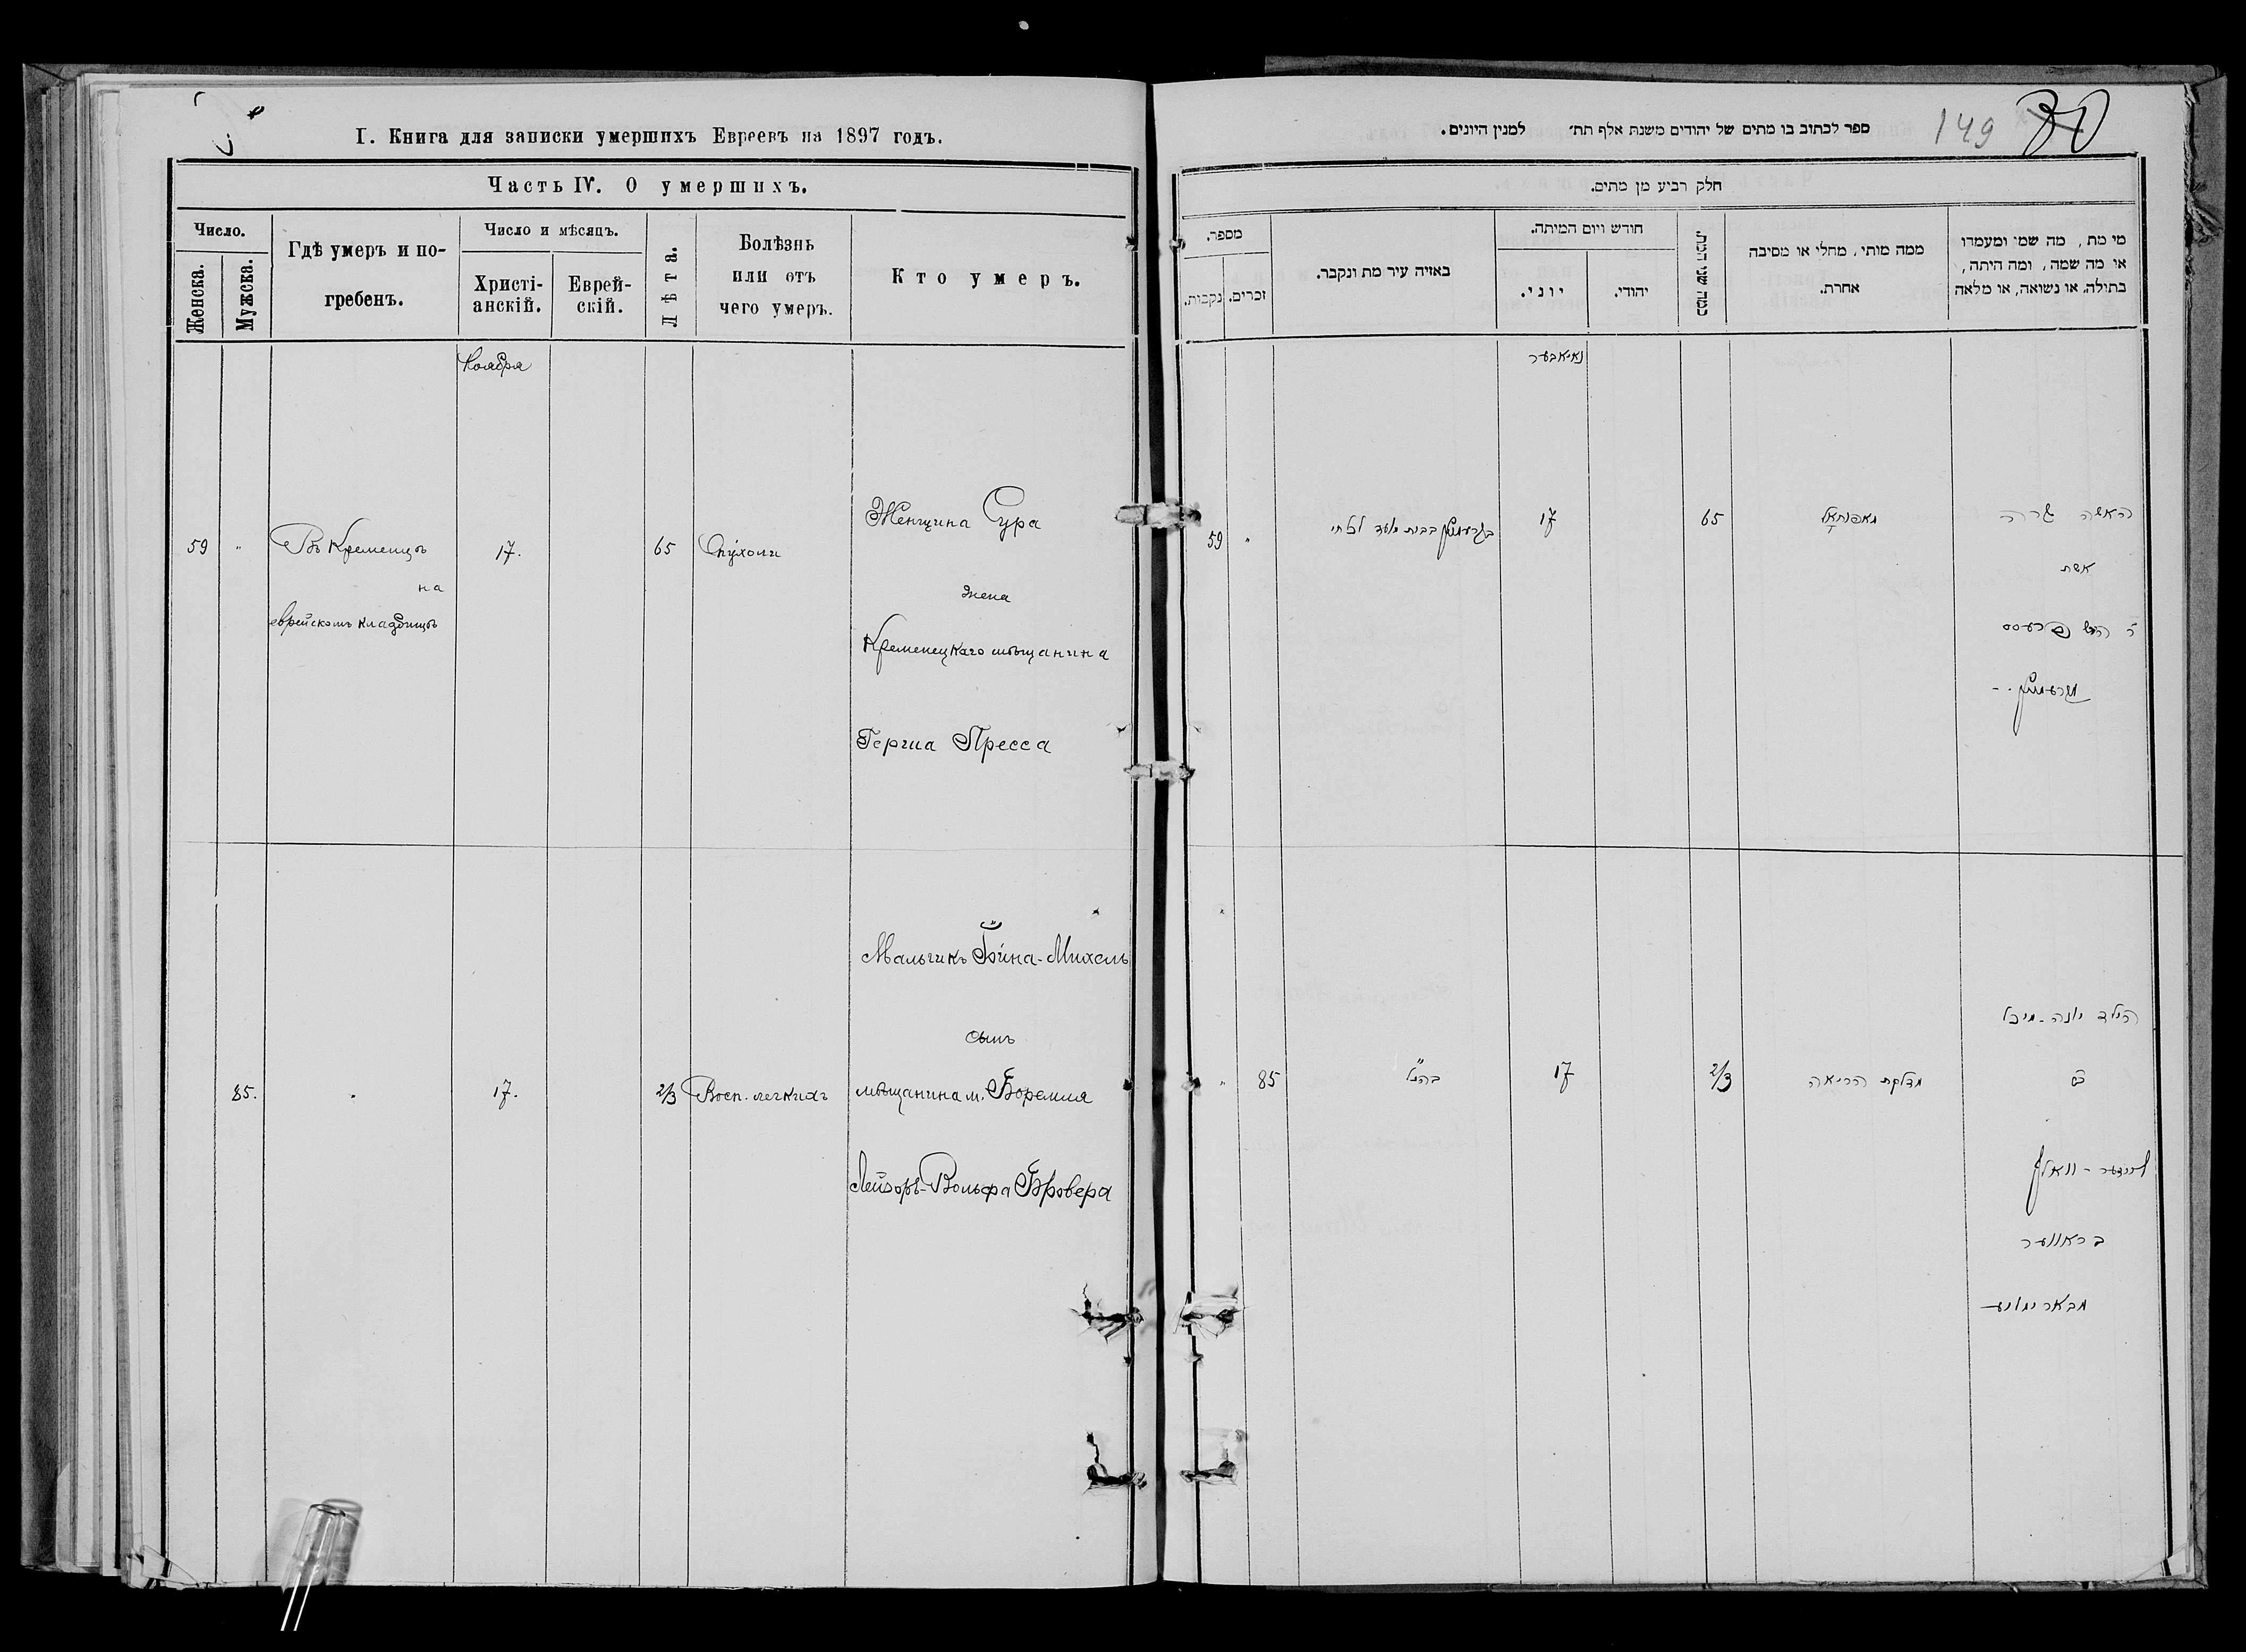 I. Книга для записки умершихъ Евреевъ на 1897 годъ.
Часть IV. О умершихъ.
Число.
Женска.
Мужска.
Гдѣ умеръ и по-
гребенъ.
Число и мѣсяцъ.
Христі-
анскій.
Еврей-
скій.
Лѣта.
Болѣзнь
или отъ
чего умеръ.
Кто умеръ.
Ноября
59
"
Въ Кременцѣ
на
еврейскомъ кладбищѣ
17.
65
Опухоли
Женщина Сура
жена
Кременецкаго мѣщанина
Герша Пресса
85.
"
17.
2/3
Восп. легкихъ
Мальчикъ Іина-Михель
сынъ
мѣщанина м. Боремля
Лейзоръ-Вольфа Бровера
149 80
ספר לכתוב בו מתים של יהודים משנת אלף תת׳ למנין היונים.
חלק רביע מן מתים.
מספר.
נקבות.
זכרים.
באזיה עיר מת ונקבר.
חודש ויום המיתה.
יוני.
יהודי.
כמה שני המת.
ממה מותי, מחלי או מסיבה
אחרת.
מי מת, מה שמו ומעמדו
או מה שמה, ומה היתה,
בתולה, או נשואה, או מלאה
נאיאבער
59
"
17
65
האשה שרה
אשת
ר׳ הרש פרעסס
"
85
בהנ"ל
17
2/3
מדלקת הריאה
הילד יונה-מיכל
בן
לייזער-וואלף
בראווער